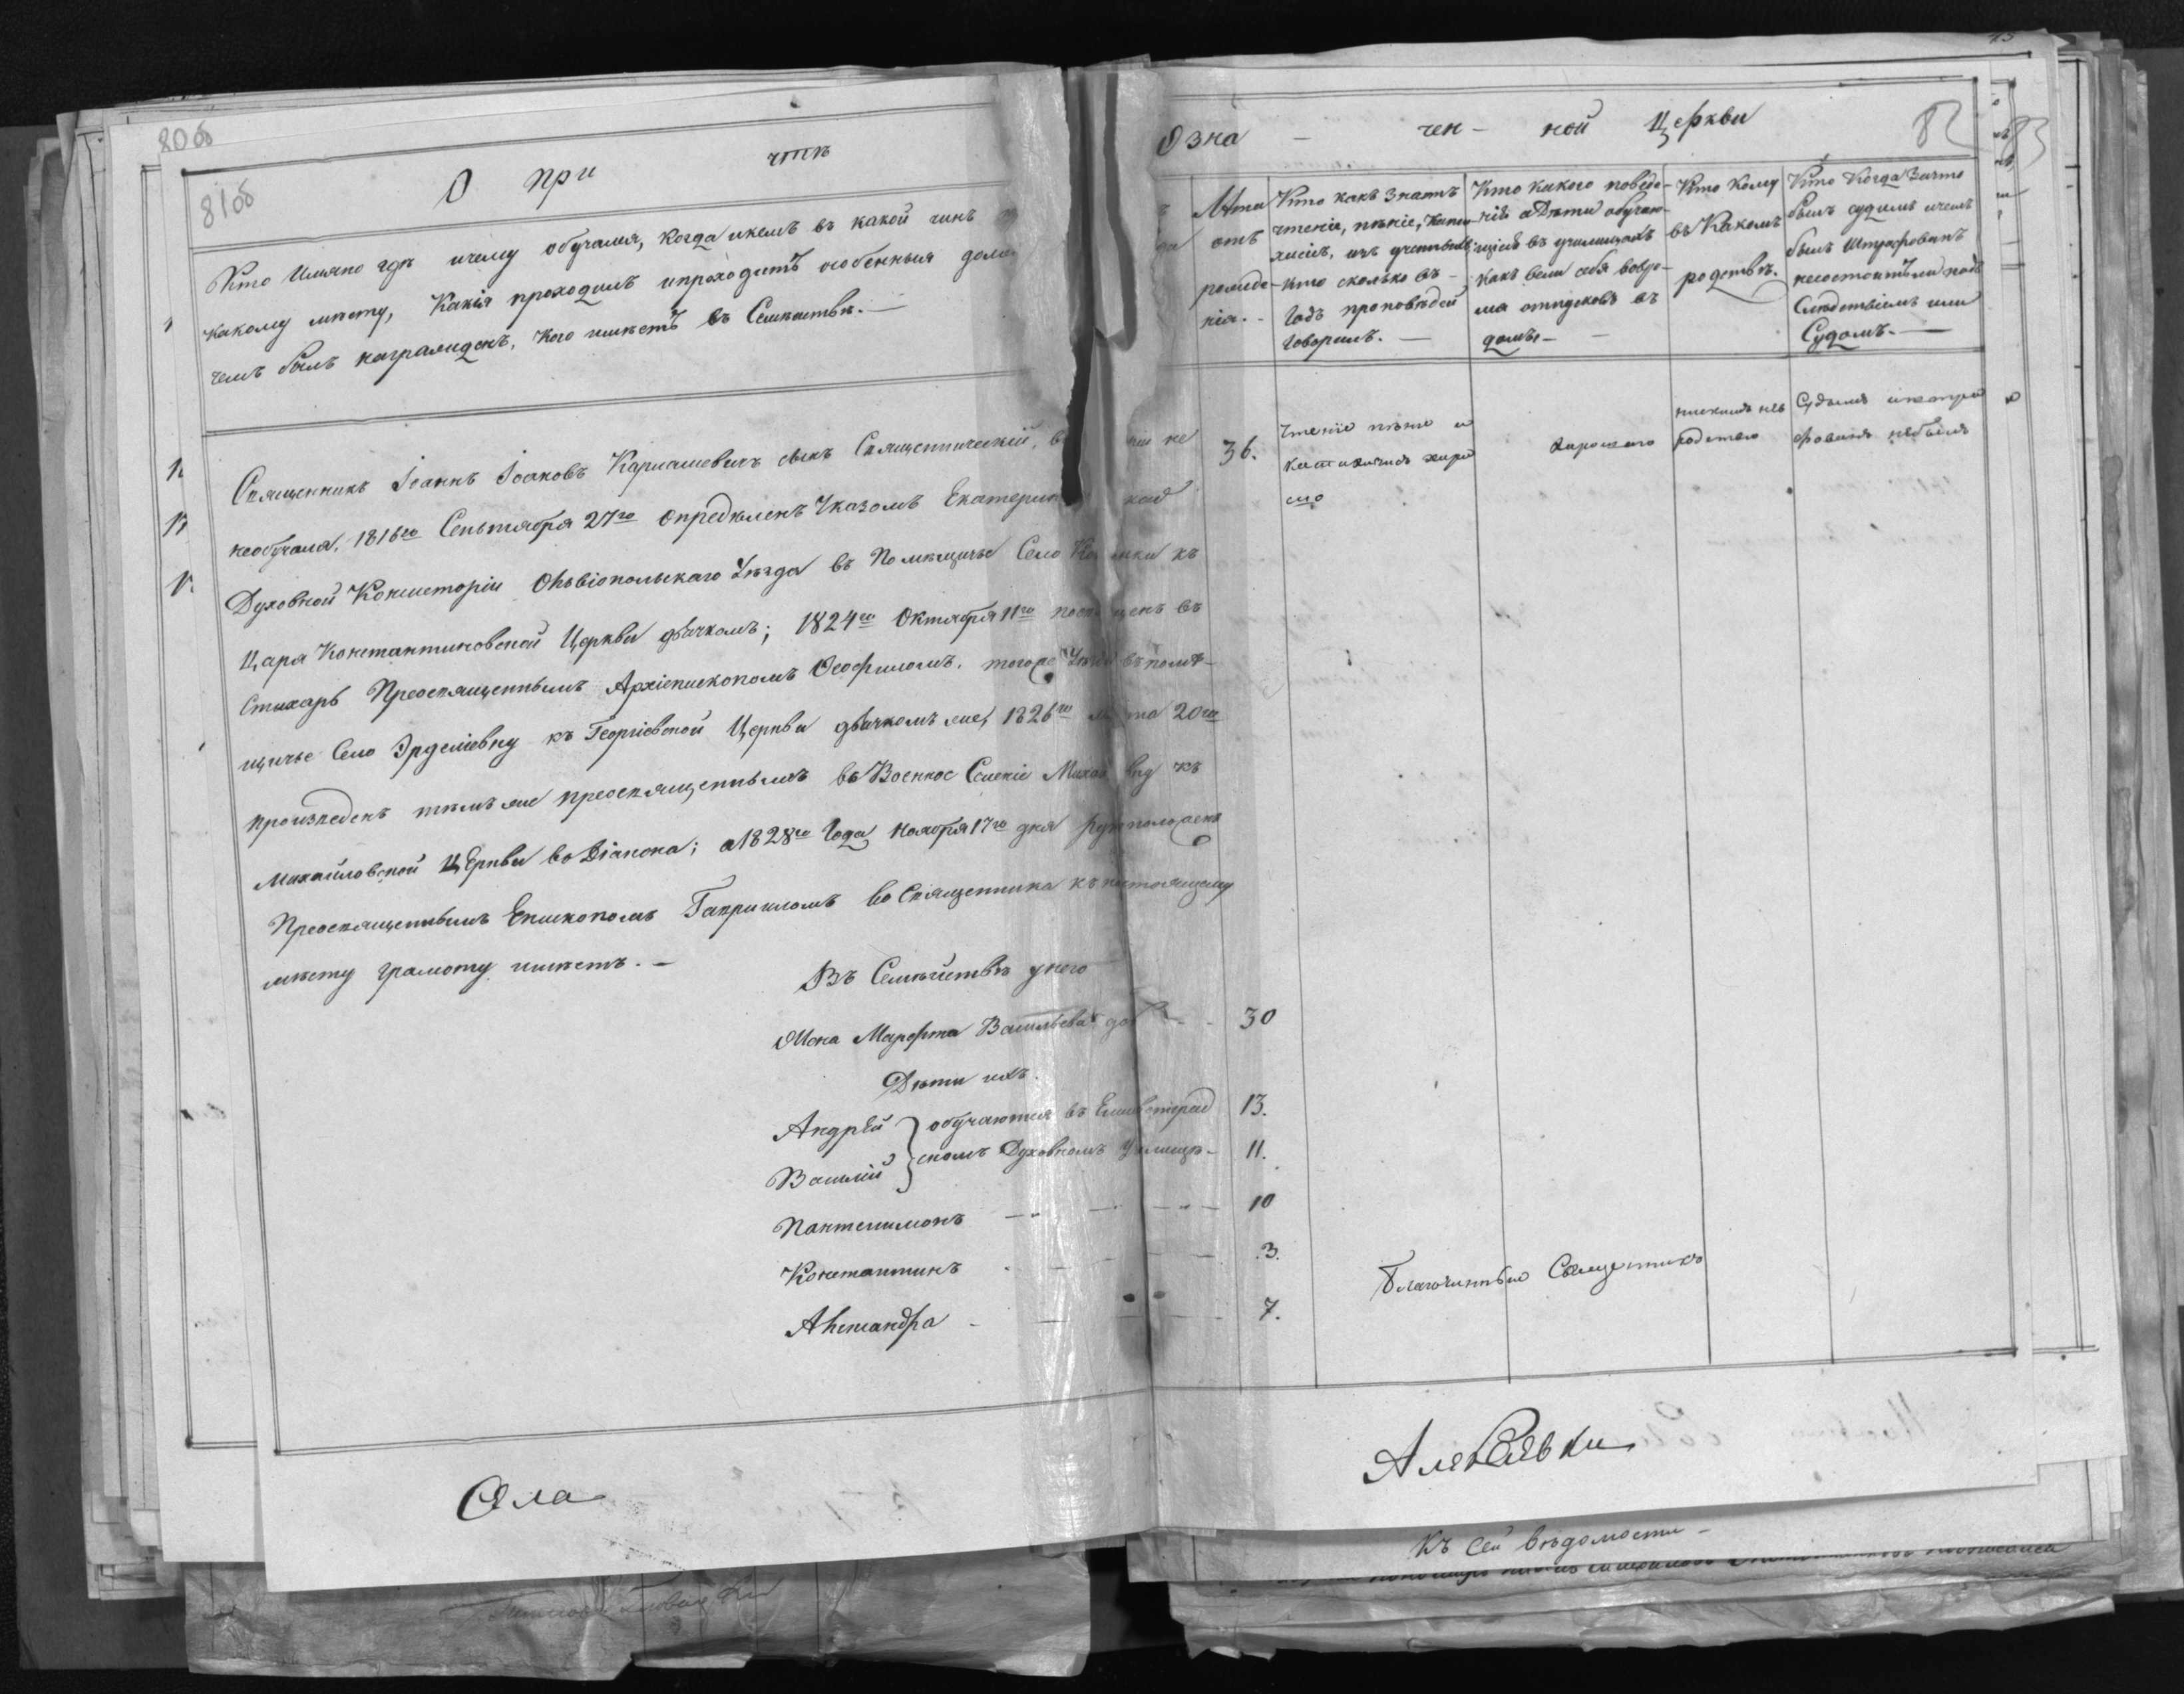 80об
81об
О при чтѣ
Кто Имяно гдѣ ичему обучался, когда икемъ въ какой чинъ
какому мѣсту, Какія проходилъ ипроходитъ особенныя долж
чемъ былъ награжденъ, Кого имѣетъ въ Семействѣ. —
Священникъ Іоаннъ Іоаковъ Карпашевичъ сынъ Священническій,
необучался, 1816го Сентября 27го опредѣленъ Указомъ Екатерин
Духовной Консисторіи Ольвіопольскаго Уѣзда въ Помѣщичье Село къ
Царя Константиновской Церкви дьячкомъ; 1824го Октября 11го посвященъ въ
Стихарь Преосвященнымъ Архіепископомъ Ѳеофиломъ. тогоже въ помѣ-
щичье Село Эрделіевку къ Георгіевской Церкви дьячкомъ же, 1826го 20го
произведенъ тѣмъ же преосвященнымъ въ Военное Селеніе къ
Михайловской Церкви во Діакона; а 1828го Года, Ноября 17го дня рукоположенъ
Преосвященнымъ Епископомъ Гавріиломъ во Священника къ настоящему
мѣсту грамоту имѣетъ. —
Въ Семѣйствѣ у него
Жона Марфта Васильева 30
Дѣти ихъ.
Андрей обучаются въ Елисаветград 13.
Василій скомъ Духовномъ Училищѣ - 11.
Пантелимонъ 10
Константинъ 3.
Александра 7.
Села
Озна - чен - ной Церкви
82
83
Лѣта
отъ
рожде-
нія. -
Кто какъ знаетъ
чтеніе, пѣніе, Кати-
хисіъ,
кто сколько въ -
годъ проповѣдей
говорилъ. —
Кто какого поведе-
нія а Дѣти обучаю-
щіеся въ училищахъ
какъ вели себя вовре-
мя отпусковъ въ
домъ —
Кто Кому
въ Какомъ
родствѣ.
Кто Когда Зачто
былъ судимъ ичемъ
былъ Штрафованъ
несостоитъ ли подъ
Слѣдствіемъ или
Судомъ. —
36.
Чтеніе пѣніе и
катихизисъ хоро
шо
хорошаго
родстве
Судимъ иштра
фованъ небылъ
Благочинный Священникъ
Алексѣевки
Къ сей вѣдомости -